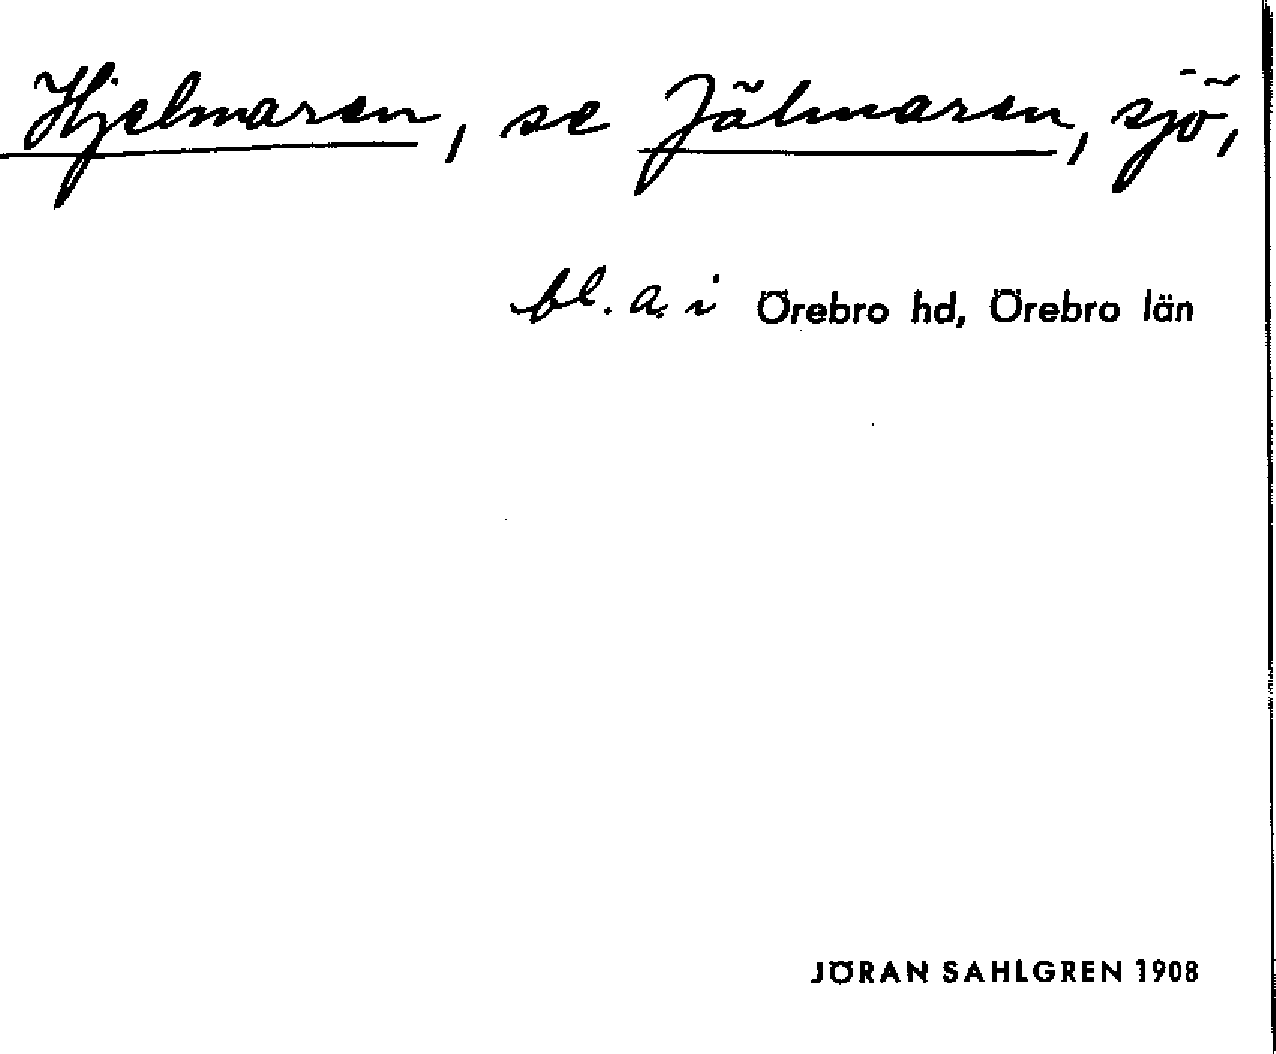 Hjelmaren, se Jälmaren, sjö,
bl. a. i Örebro hd, Örebro län
JÖRAN SAHLGREN 1908